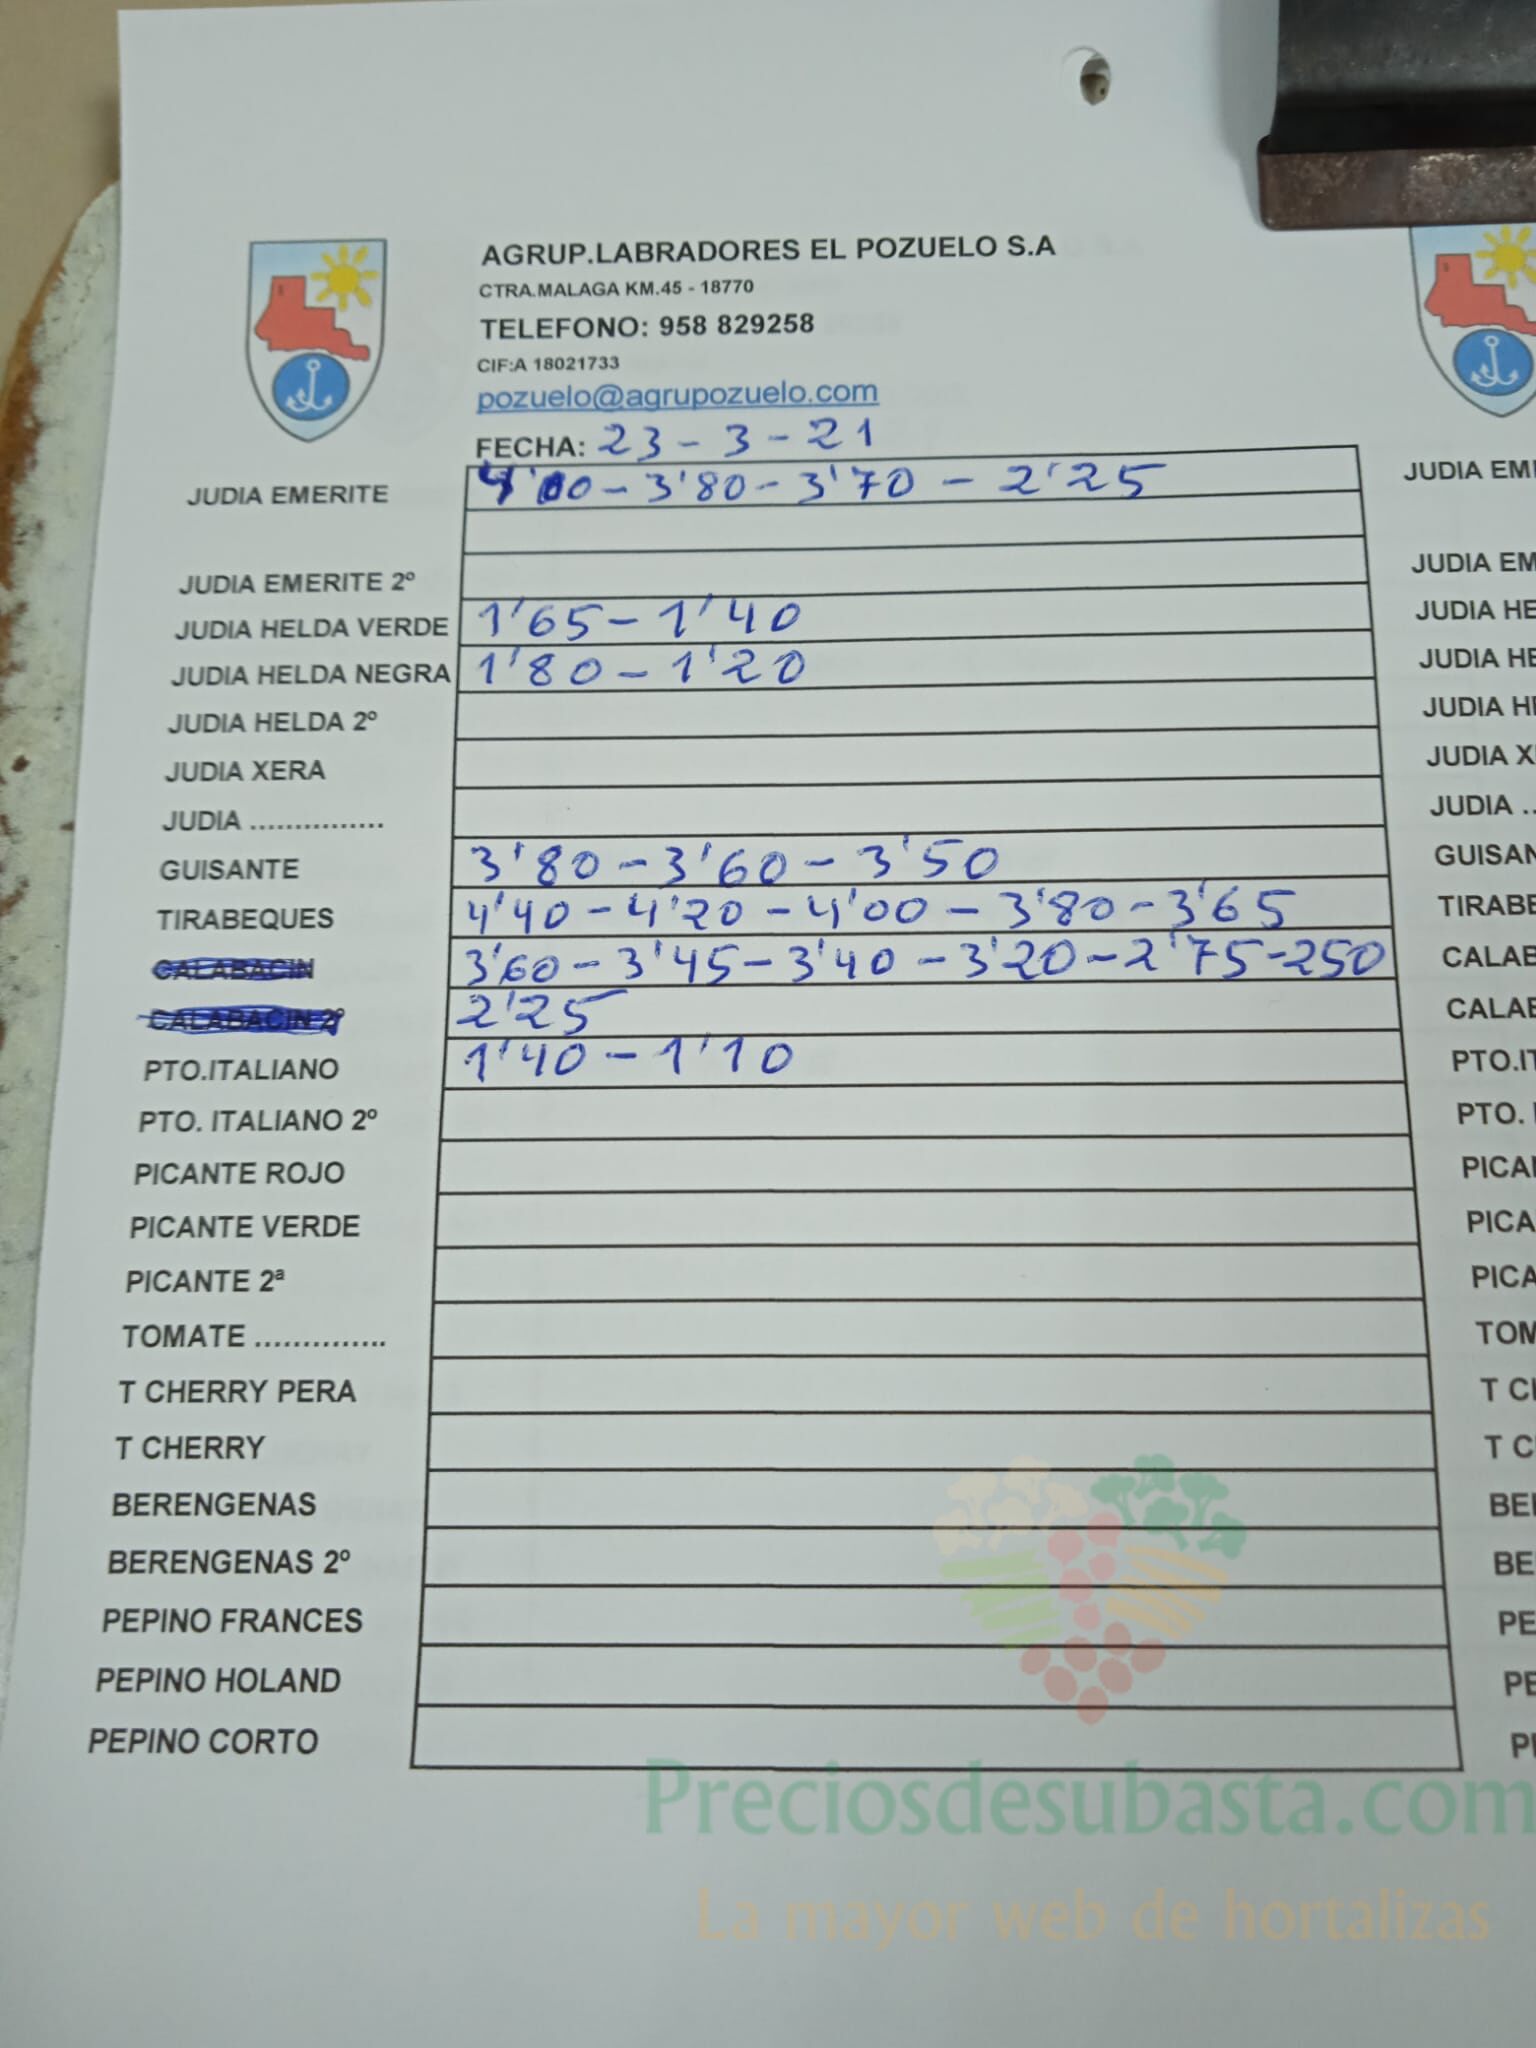 AGRUP.LABRADORES EL POZUELO S.A
CTRA.MALAGA KM.45 - 18770
TELEFONO: 958 829258
CIF:A 18021733
pozuelo@agrupozuelo.com
FECHA: 23-3-21
JUDIA EMERITE 4'00-3'80-3'70-2'25 JUDIA EM
JUDIA EMERITE 2º JUDIA EM
JUDIA HELDA VERDE 1'65-1'40 JUDIA HE
JUDIA HELDA NEGRA 1'80-1'20 JUDIA HE
JUDIA HELDA 2º JUDIA H
JUDIA XERA JUDIA X
JUDIA ............... JUDIA ..
GUISANTE 3'80-3'60-3'50 GUISAN
TIRABEQUES 4'40-4'20-4'00-3'80-3'65 TIRABE
CALABACIN 3'60-3'45-3'40-3'20-2'75-250 CALAB
CALABACIN 2º 2'25 CALAB
PTO.ITALIANO 1'40-1'10 PTO.IT
PTO. ITALIANO 2º PTO.
PICANTE ROJO PICA
PICANTE VERDE PICA
PICANTE 2ª PICA
TOMATE .............. TOM
T CHERRY PERA T C
T CHERRY T C
BERENGENAS BE
BERENGENAS 2º BE
PEPINO FRANCES PE
PEPINO HOLAND PE
PEPINO CORTO P
Preciosdesubasta.com
La mayor web de hortalizas